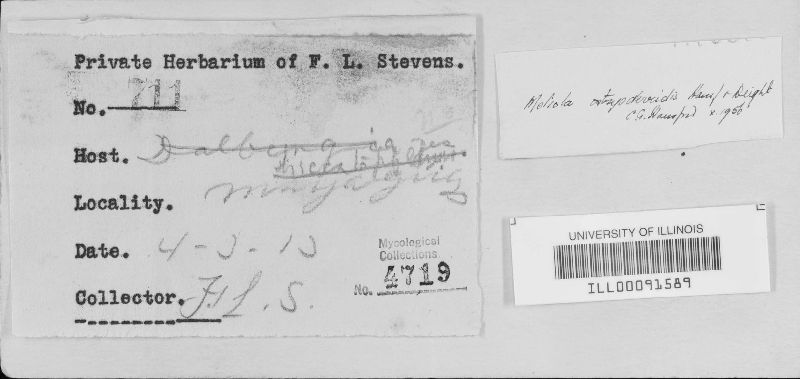 Private Herbarium of F. L. Stevens.
No. 711
Host. Dalbergia
Locality.
Date. 4-3-13
Collector. F L. S.
Mycological
Collections
No. 4719
Meliola Hansf & Deight
C.G. Hansford x.1956
UNIVERSITY OF ILLINOIS
ILL00091589